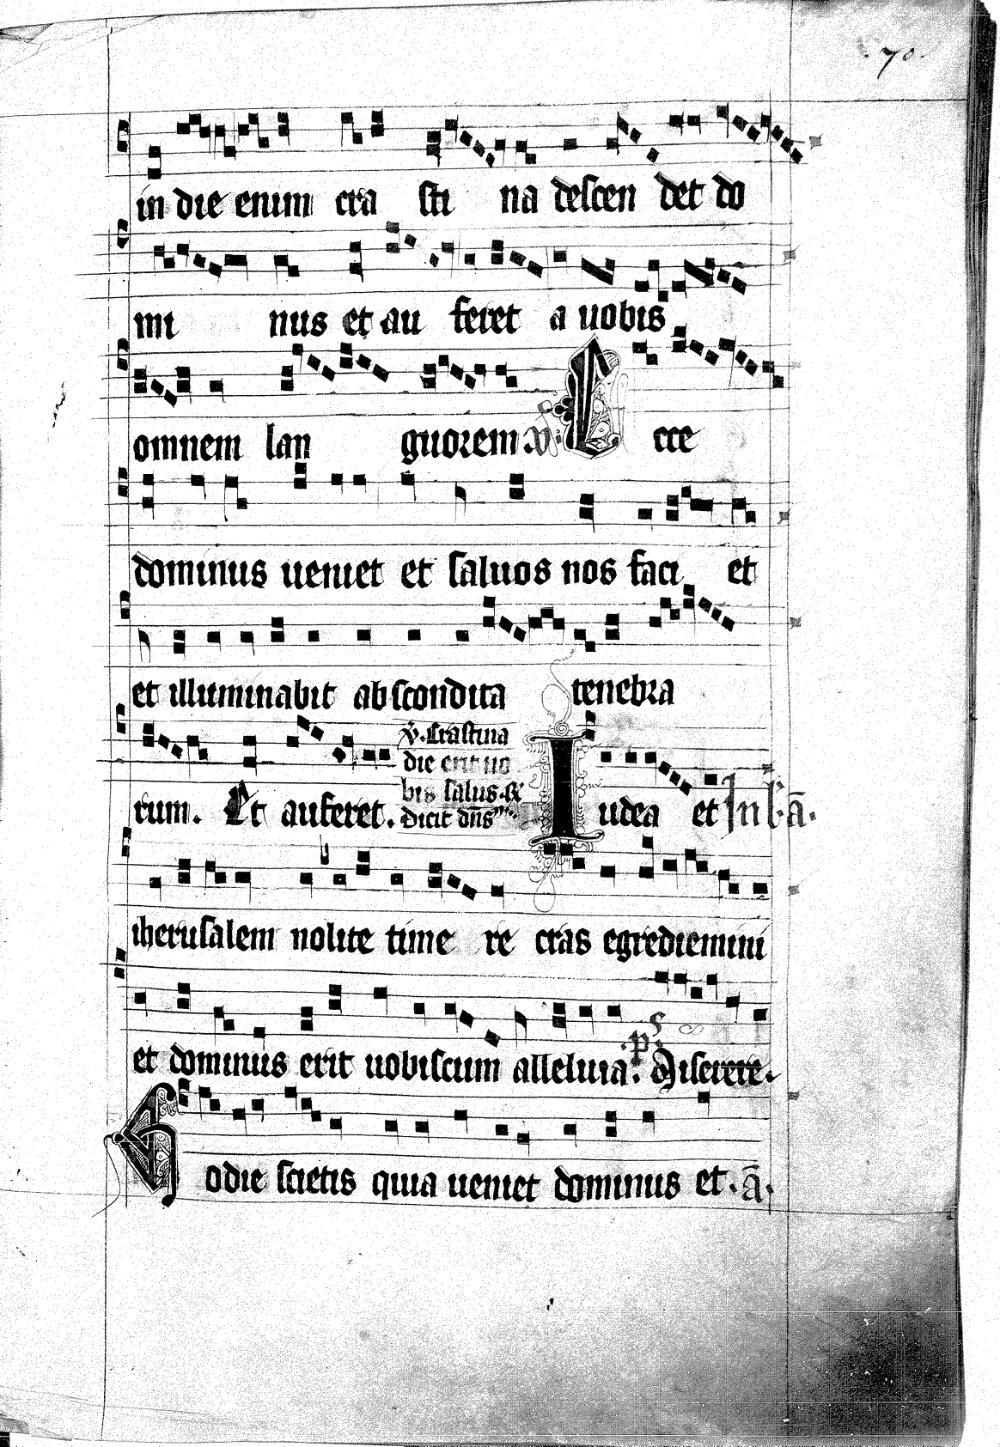 70.
in die enim cra sti na descen det do
mi nus et au feret a uobis
omnem lan guorem v. Ecce
dominus ueniet et saluos nos faci et
et illuminabit abscondita tenebra
v. Crastina
die erit uo
bis salus. &
Dicit dn̄s
rum. Et auferet. Iudea et In lā.
iherusalem nolite time re cras egrediemini
et dominus erit uobiscum alleluia. ps Miserere.
Hodie scietis quia ueniet dominus et. ā.